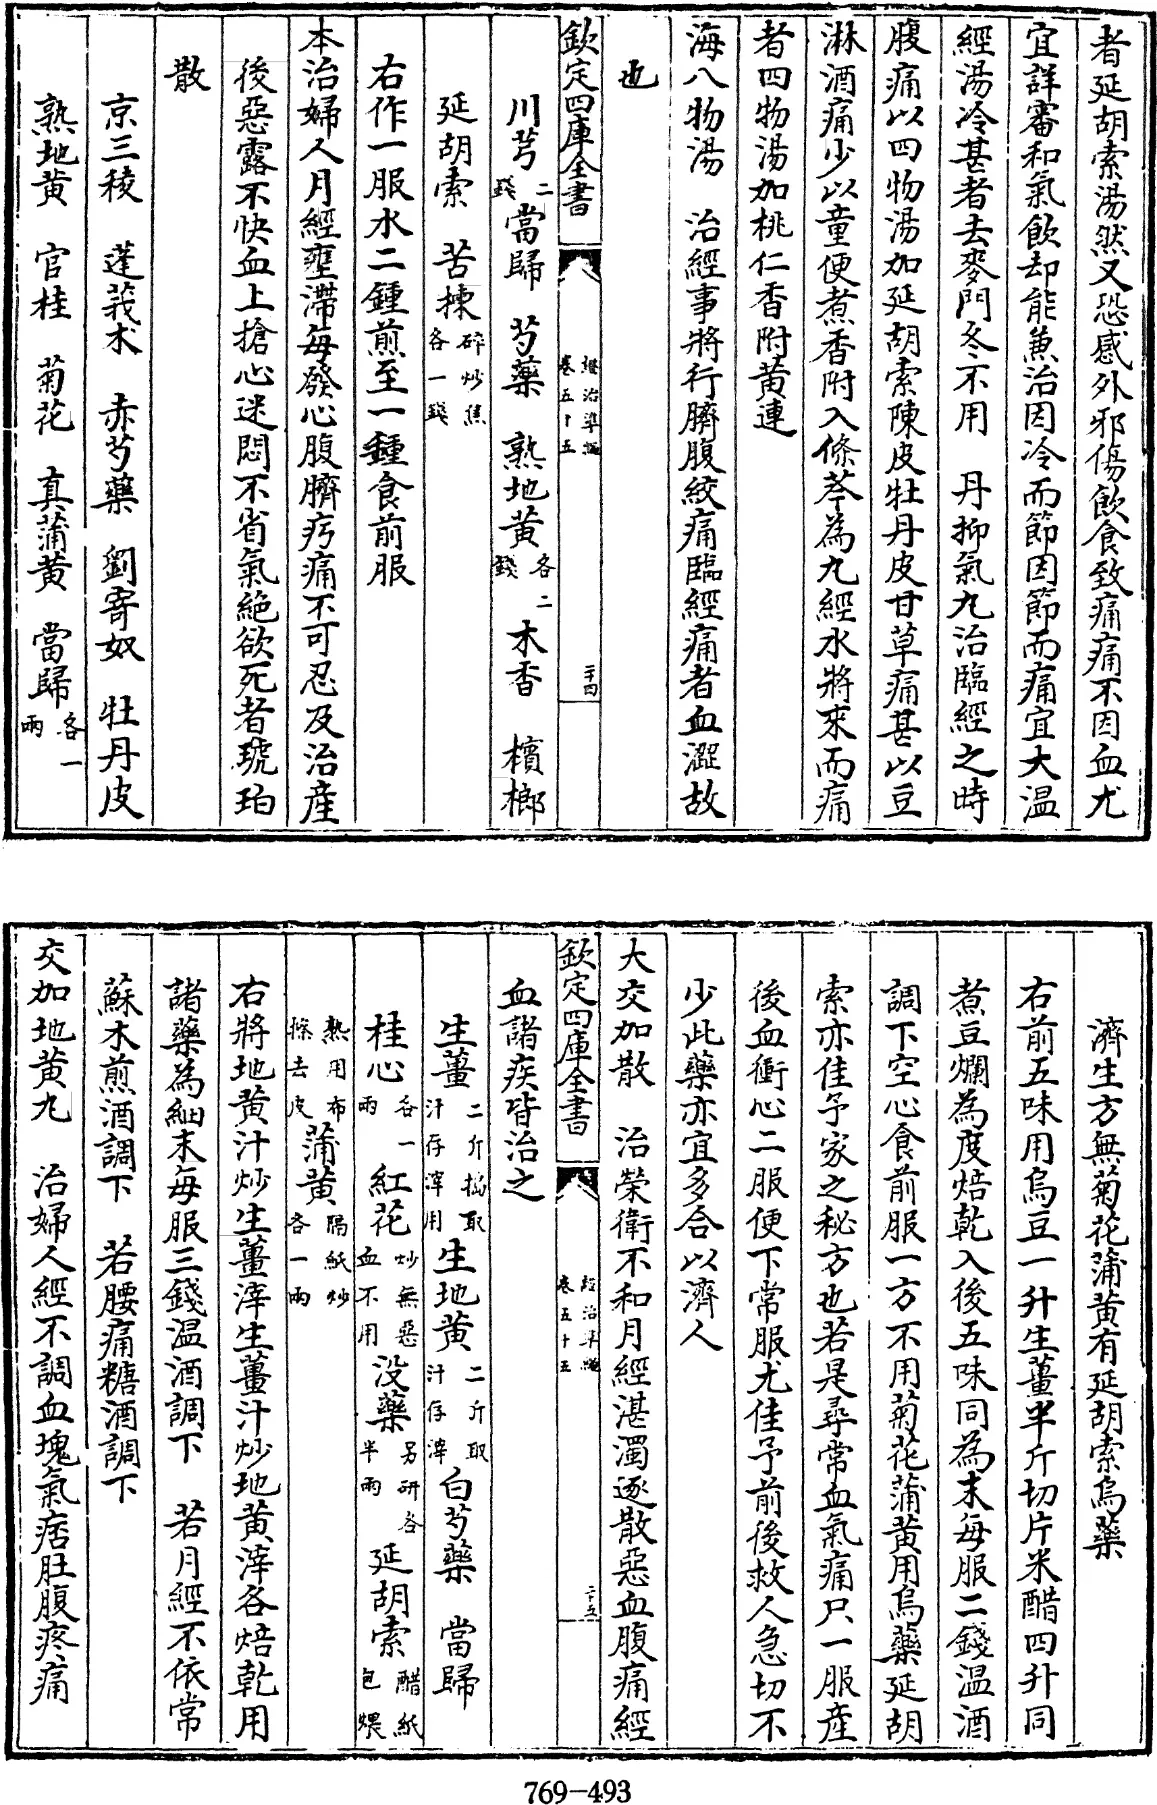 者延胡索湯然又恐感外邪傷飲食致痛痛不因血尤
宜詳審和氣飲却能兼治因冷而節因節而痛宜大温
經湯冷甚者去麥門冬不用　丹抑氣丸治臨經之時
腹痛以四物湯加延胡索陳皮牡丹皮甘草痛甚以豆
淋酒痛少以童便煮香附入條芩為丸經水將來而痛
者四物湯加桃仁香附黄連
海八物湯　治經事將行臍腹絞痛臨經痛者血澀故
也
欽定四庫全書　證治凖繩卷五十五　二十四
川芎二錢當歸　芍藥　熟地黄各二錢　木香　檳榔
延胡索　苦揀碎炒焦各一錢
右作一服水二鍾煎至一鍾食前服
本治婦人月經壅滯每發心腹臍㽲痛不可忍及治産
後惡露不快血上搶心迷悶不省氣絶欲死者琥珀
散
京三稜　蓬莪朮　赤芍藥　劉寄奴　牡丹皮
熟地黄　官桂　菊花　真蒲黄　當歸各一兩
濟生方無菊花蒲黄有延胡索烏藥
右前五味用烏豆一升生薑半斤切片米醋四升同
煮豆爛為度焙乾入後五味同為末每服二錢温酒
調下空心食前服一方不用菊花蒲黄用烏藥延胡
索亦佳予家之秘方也若是尋常血氣痛只一服産
後血衝心二服便下常服尤佳予前後救人急切不
少此藥亦宜多合以濟人
大交加散　治榮衛不和月經湛濁逐散惡血腹痛經
欽定四庫全書　證治凖繩卷五十五　二十五
血諸疾皆治之
生薑二斤搗取汁存滓用生地黄二斤取汁存滓白芍藥　當歸
桂心各一兩　紅花炒無惡血不用没藥另研各半兩　延胡索醋紙包煨
熟用布擦去皮蒲黄隔紙炒各一兩
右將地黄汁炒生薑滓生薑汁炒地黄滓各焙乾用
諸藥為細末每服三錢温酒調下　若月經不依常
蘇木煎酒調下　若腰痛糖酒調下
交加地黄丸　治婦人經不調血塊氣痞肚腹疼痛
769-493